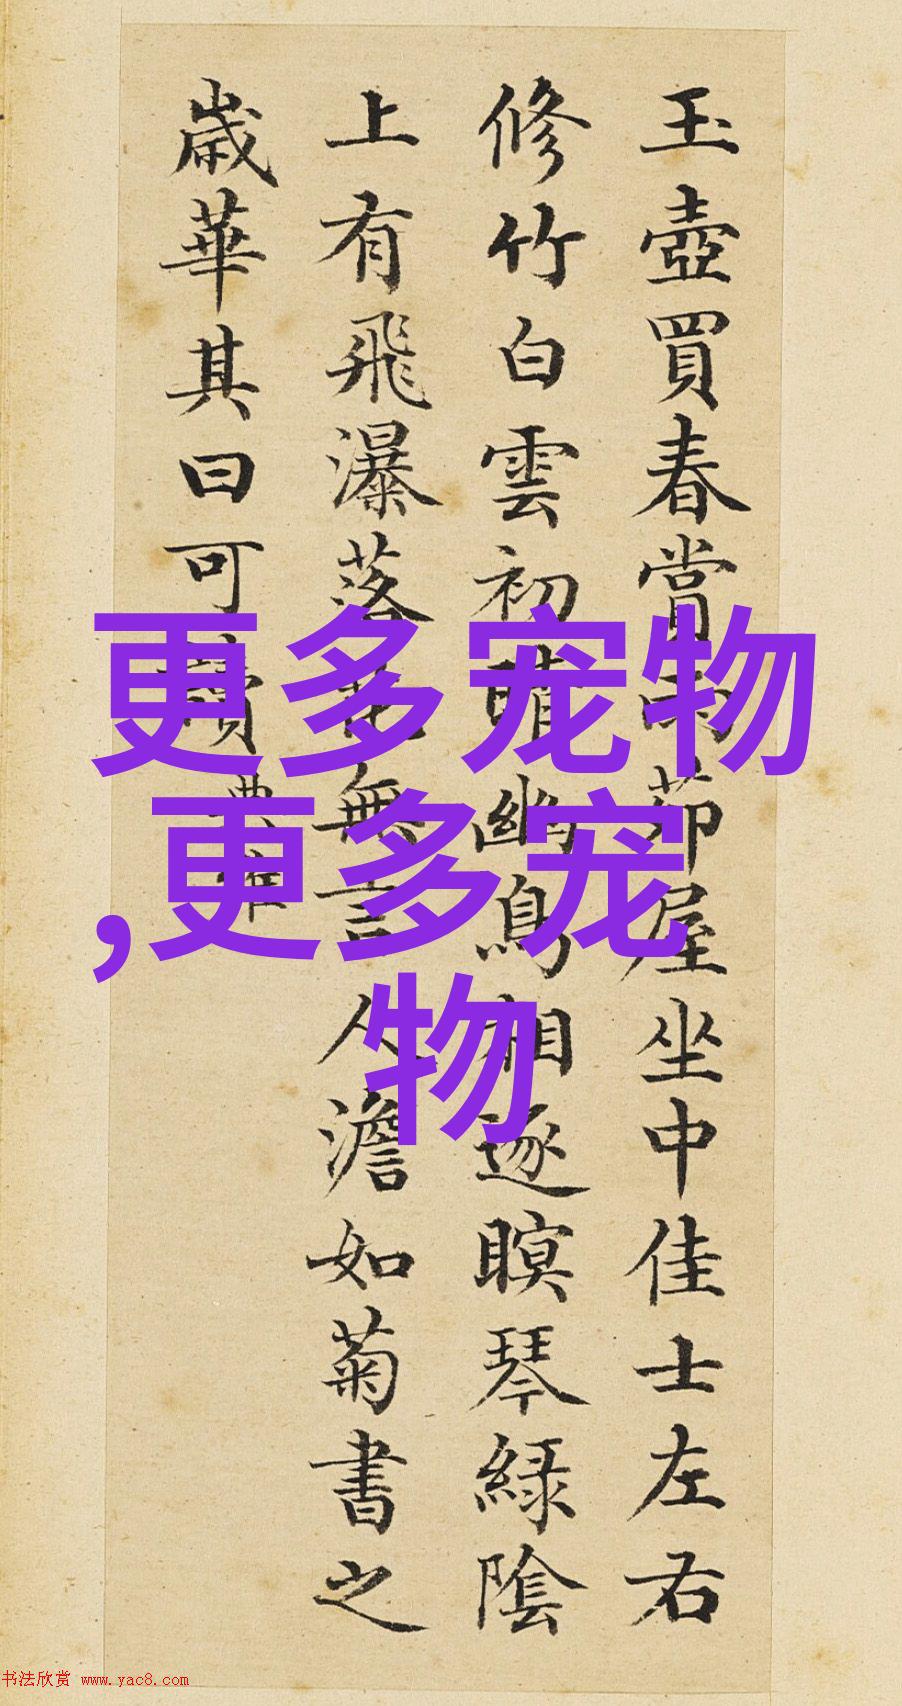 玉壺買春賞雨茆屋坐中佳士左右
修竹白雲初晴幽鳥相逐瞑琴綠陰
上有飛瀑落花無言人澹如菊書之
歲華其曰可讀
典雅
更多宠物
,更多宠
物
书法欣赏 www.yac8.com